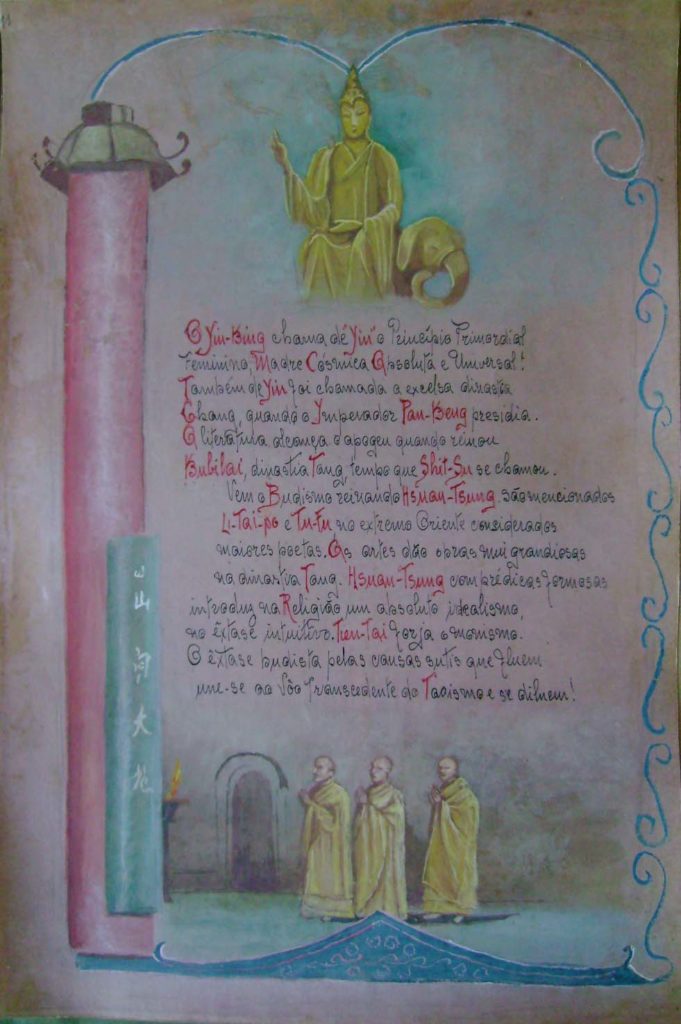 O Yin-King chama de "Yin" o Princípio Primordial
Feminino, Madre Cósmica Absoluta e Universal!
Também de Yin foi chamada a excelsa dinastia
Chang, quando o Imperador Pan-Keng presidia.
A literatura alcança o apogeu quando reinou
Kubilai, dinastia Tang, tempo que Shit-Su se chamou.
Vem o Budismo reinando Hsuan-Tsung, são mencionados
Li-Tai-po e Tu-Fu no extremo Oriente considerados
maiores poetas. As artes dão obras mui grandiosas
na dinastia Tang. Hsuan-Tsung com prédicas formosas
introduz na Religião um absoluto idealismo,
no êxtase intuitivo. Tien-Tai forja o monismo.
O êxtase budista pelas causas sutis que fluem
une-se ao Vôo Transcedente do Taoismo e se diluem!
山
大